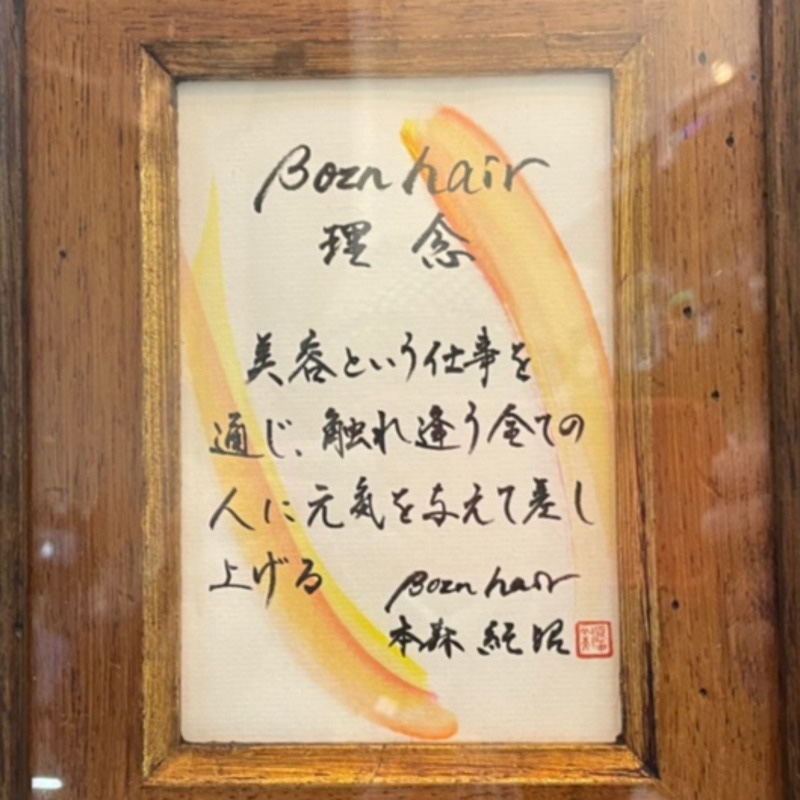 Born hair
理念
美容という仕事を
通じ、触れ逢う全ての
人に元気を与えて差し
上げる
Born hair
本森 純昭